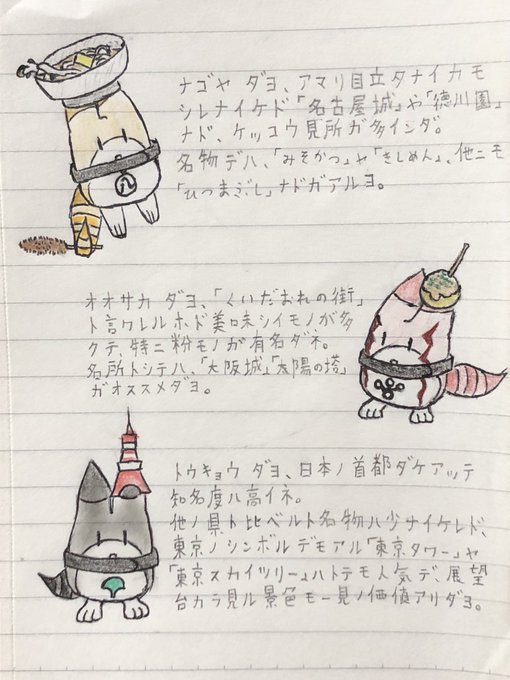 ナゴヤ ダヨ、アマリ目立タナイカモ
シレナイケド「名古屋城」や「徳川園」
ナド、ケッコウ見所ガ多インダ。
名物デハ、「みそかつ」ヤ「きしめん」、他ニモ
「ひつまぶし」ナドガアルヨ。
オオサカ ダヨ、「くいだおれの街」
ト言ワレルホド美味シイモノが多
クテ、特ニ粉モノが有名ダネ。
名所トシテハ、「大阪城」「太陽の塔」
ガオススメダヨ。
トウキョウ ダヨ、日本ノ首都ダケアッテ
知名度ハ高イネ。
他ノ県ト比ベルト名物ハ少ナイケレド、
東京ノシンボルデモアル「東京タワー」ヤ
「東京スカイツリー」ハトテモ人気デ、展望
台カラ見ル景色モ一見ノ価値アリダヨ。
八